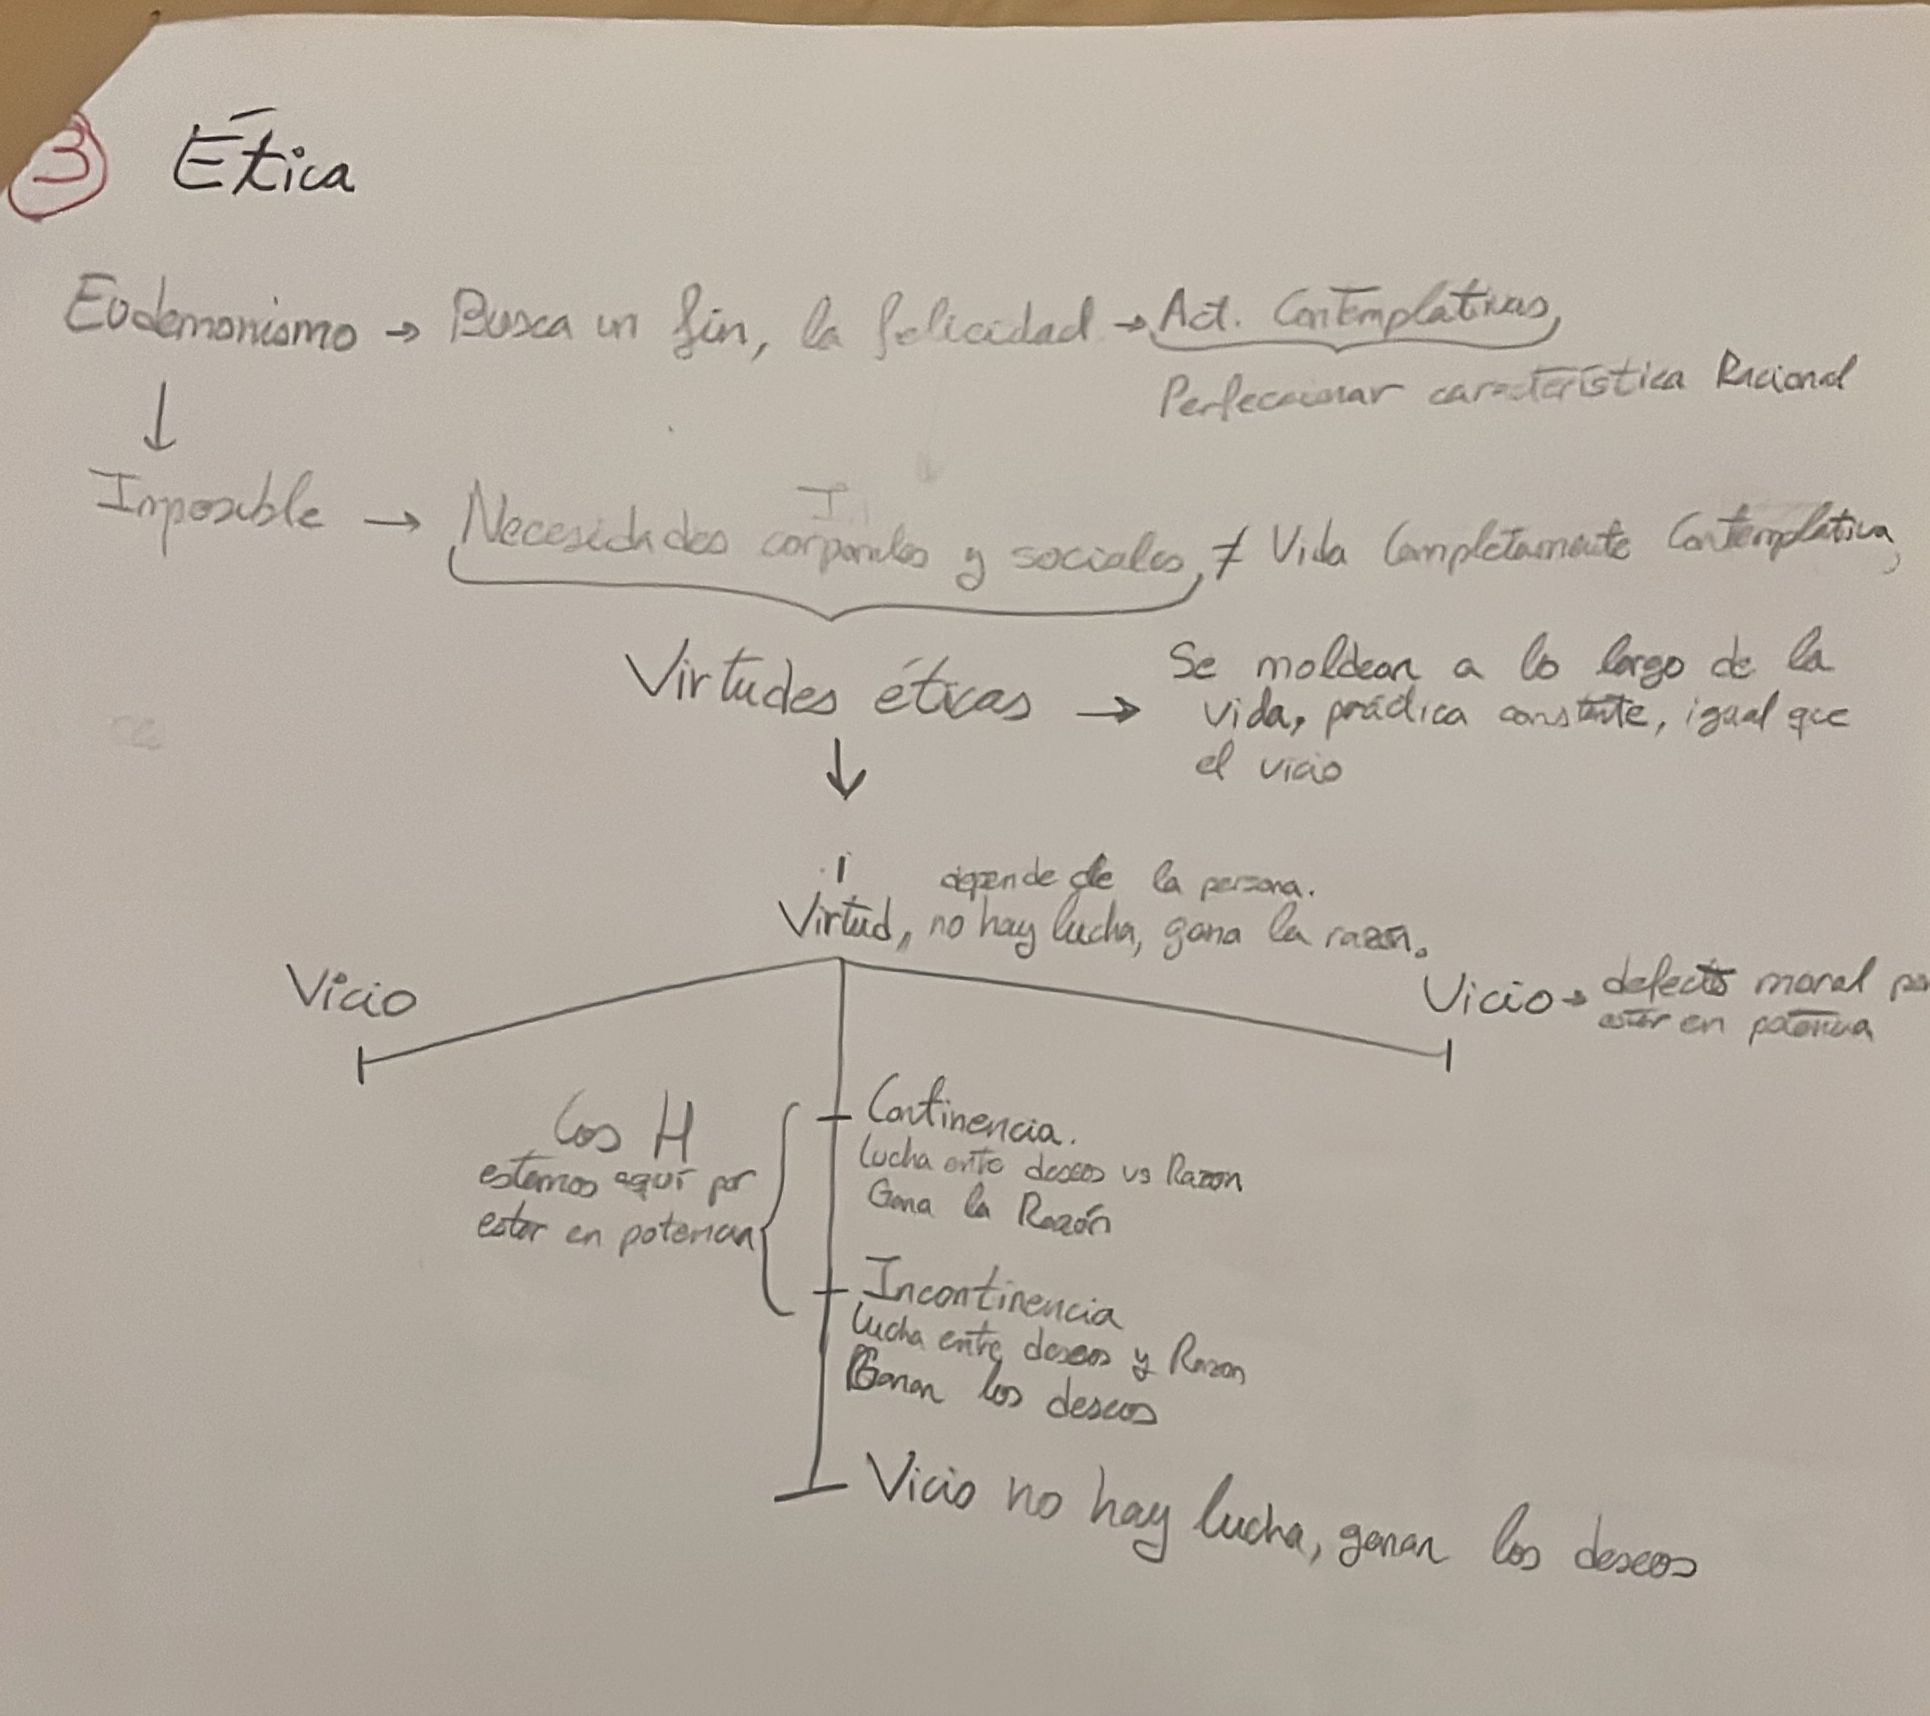 3 Ética
Eudemonismo → Busca un fin, la felicidad → Act. Contemplativas,
Perfeccionar característica Racional
Imposible → Necesidades corporales y sociales, ≠ Vida Completamente Contemplativa,
Virtudes éticas →
Se moldean a lo largo de la
vida, práctica constante, igual que
el vicio
depende de la persona.
Virtud, no hay lucha, gana la razón.
Vicio
Vicio → defecto moral
estar en potencia
Continencia.
Lucha ente deseos vs Razon
Gana la Razón
Los H
estamos aquí por
estar en potencia
Incontinencia
Lucha entre deseos y Razon
Ganan los deseos
Vicio no hay lucha, ganan los deseos